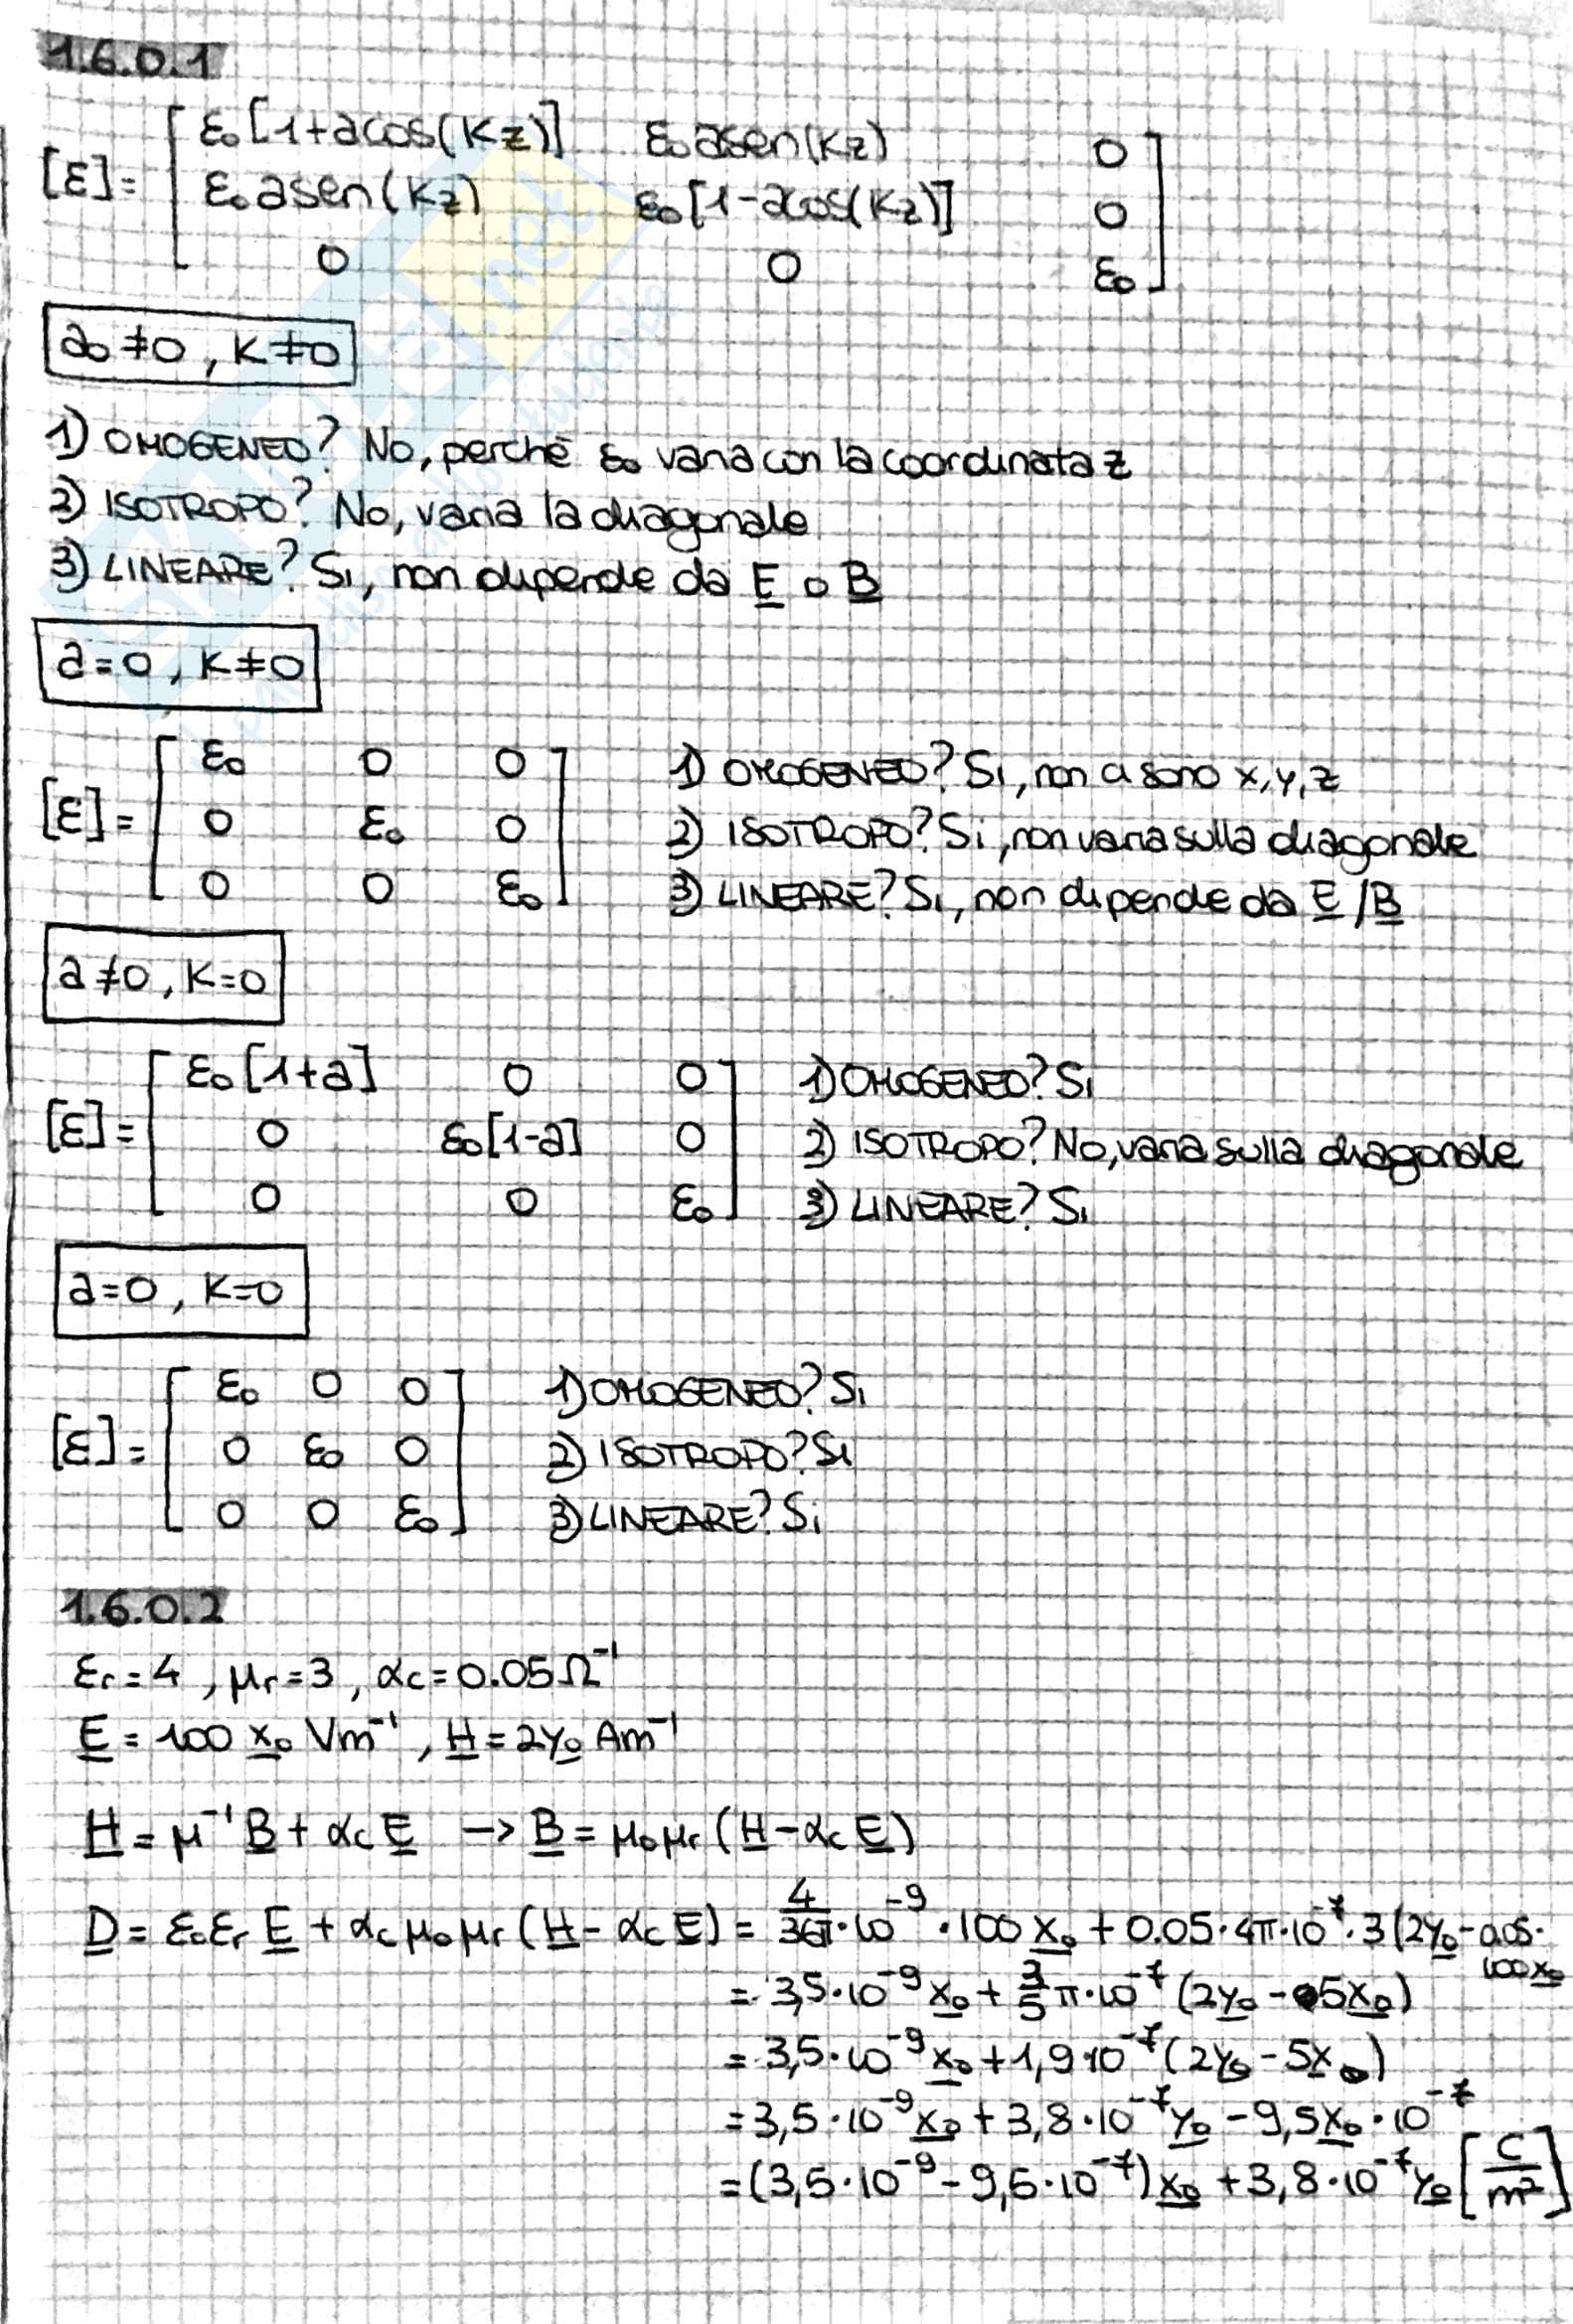 1.6.0.1
[ε]= [ ε₀[1+acos(Kz)] ε₀asen(Kz) 0
ε₀asen(Kz) ε₀[1-acos(Kz)] 0
0 0 ε₀ ]
a₀≠0, K≠0
1) OMOGENEO? No, perchè ε₀ varia con la coordinata z
2) ISOTROPO? No, varia la diagonale
3) LINEARE? Si, non dipende da E o B
a=0, K≠0
[ε]= [ ε₀ 0 0
0 ε₀ 0
0 0 ε₀ ]
1) OMOGENEO? Si, non ci sono x,y,z
2) ISOTROPO? Si, non varia sulla diagonale
3) LINEARE? Si, non dipende da E/B
a≠0, K=0
[ε]= [ ε₀[1+a] 0 0
0 ε₀[1-a] 0
0 0 ε₀ ]
1) OMOGENEO? Si
2) ISOTROPO? No, varia sulla diagonale
3) LINEARE? Si
a=0, K=0
[ε]= [ ε₀ 0 0
0 ε₀ 0
0 0 ε₀ ]
1) OMOGENEO? Si
2) ISOTROPO? Si
3) LINEARE? Si
1.6.0.2
εr=4, μr=3, αc=0.05Ω⁻¹
E=100 x₀ Vm⁻¹, H=2y₀ Am⁻¹
H=μ⁻¹B+αcE → B=μ₀μr(H-αcE)
D=ε₀εrE+αcμ₀μr(H-αcE)= 4/36π·10⁻⁹·100x₀+0.05·4π·10⁻⁷·3(2y₀-0.05·
100x₀
=3,5·10⁻⁹x₀+3/5π·10⁻⁷(2y₀-5x₀)
=3,5·10⁻⁹x₀+1,9·10⁻⁷(2y₀-5x₀)
=3,5·10⁻⁹x₀+3,8·10⁻⁷y₀-9,5x₀·10⁻⁷
=(3,5·10⁻⁹-9,5·10⁻⁷)x₀+3,8·10⁻⁷y₀ [C/m²]